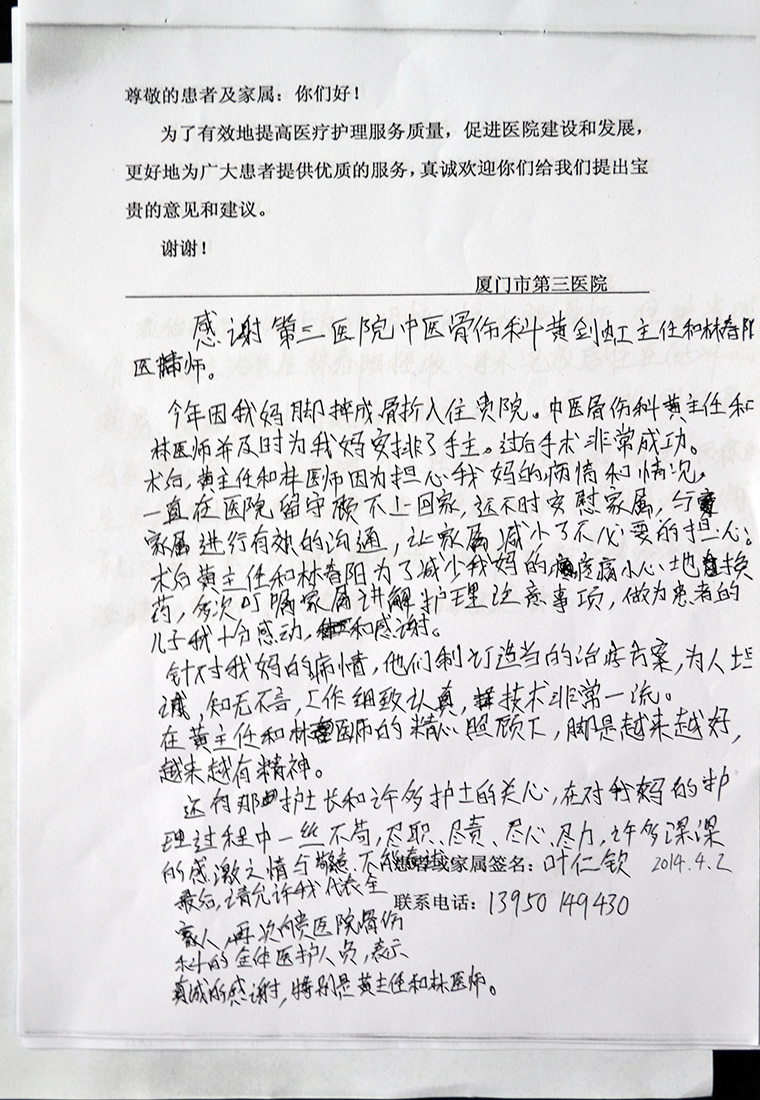 尊敬的患者及家属：你们好！
为了有效地提高医疗护理服务质量，促进医院建设和发展，
更好地为广大患者提供优质的服务，真诚欢迎你们给我们提出宝
贵的意见和建议。
谢谢！
厦门市第三医院
感谢第三医院中医骨伤科黄剑虹主任和林春阳
医师。
今年因我妈脚摔成骨折入住贵院。中医骨伤科黄主任和
林医师并及时为我妈安排了手主。过后手术非常成功。
术后，黄主任和林医师因为担心我妈的病情和情况，
一直在医院留守顾不上回家，还不时安慰家属，与
家属进行有效的沟通，让家属减少了不必要的担心。
术后黄主任和林春阳为了减少我妈的疼痛小心地换
药，多次叮嘱家属讲解护理注意事项，做为患者的
儿子我十分感动，和感谢。
针对我妈的病情，他们制订适当的治疗方案，为人坦
诚，知无不言，工作细致认真，技术非常一流。
在黄主任和林医师的精心照顾下，脚是越来越好，
越来越有精神。
还有那护士长和许多护士的关心，在对我妈的护
理过程中一丝不苟，尽职、尽责、尽心、尽力，许多深深
的感激之情与
患者或家属签名：叶仁钦 2014.4.2
最后，请允许我代表全
联系电话：13950149430
家人，再次向贵医院骨伤
科的全体医护人员，表示
真诚的感谢，特别是黄主任和林医师。